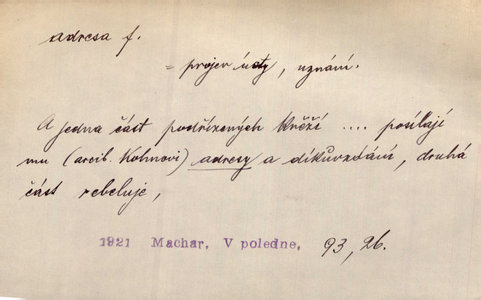 adresa f.
= projev úcty, uznání.
A jedna část podřízených kněží .... posílají
mu (arcib. Kohnovi) adresy a díkůvzdání, druhá
část rebeluje,
1921 Machar, V poledne, 93, 26.